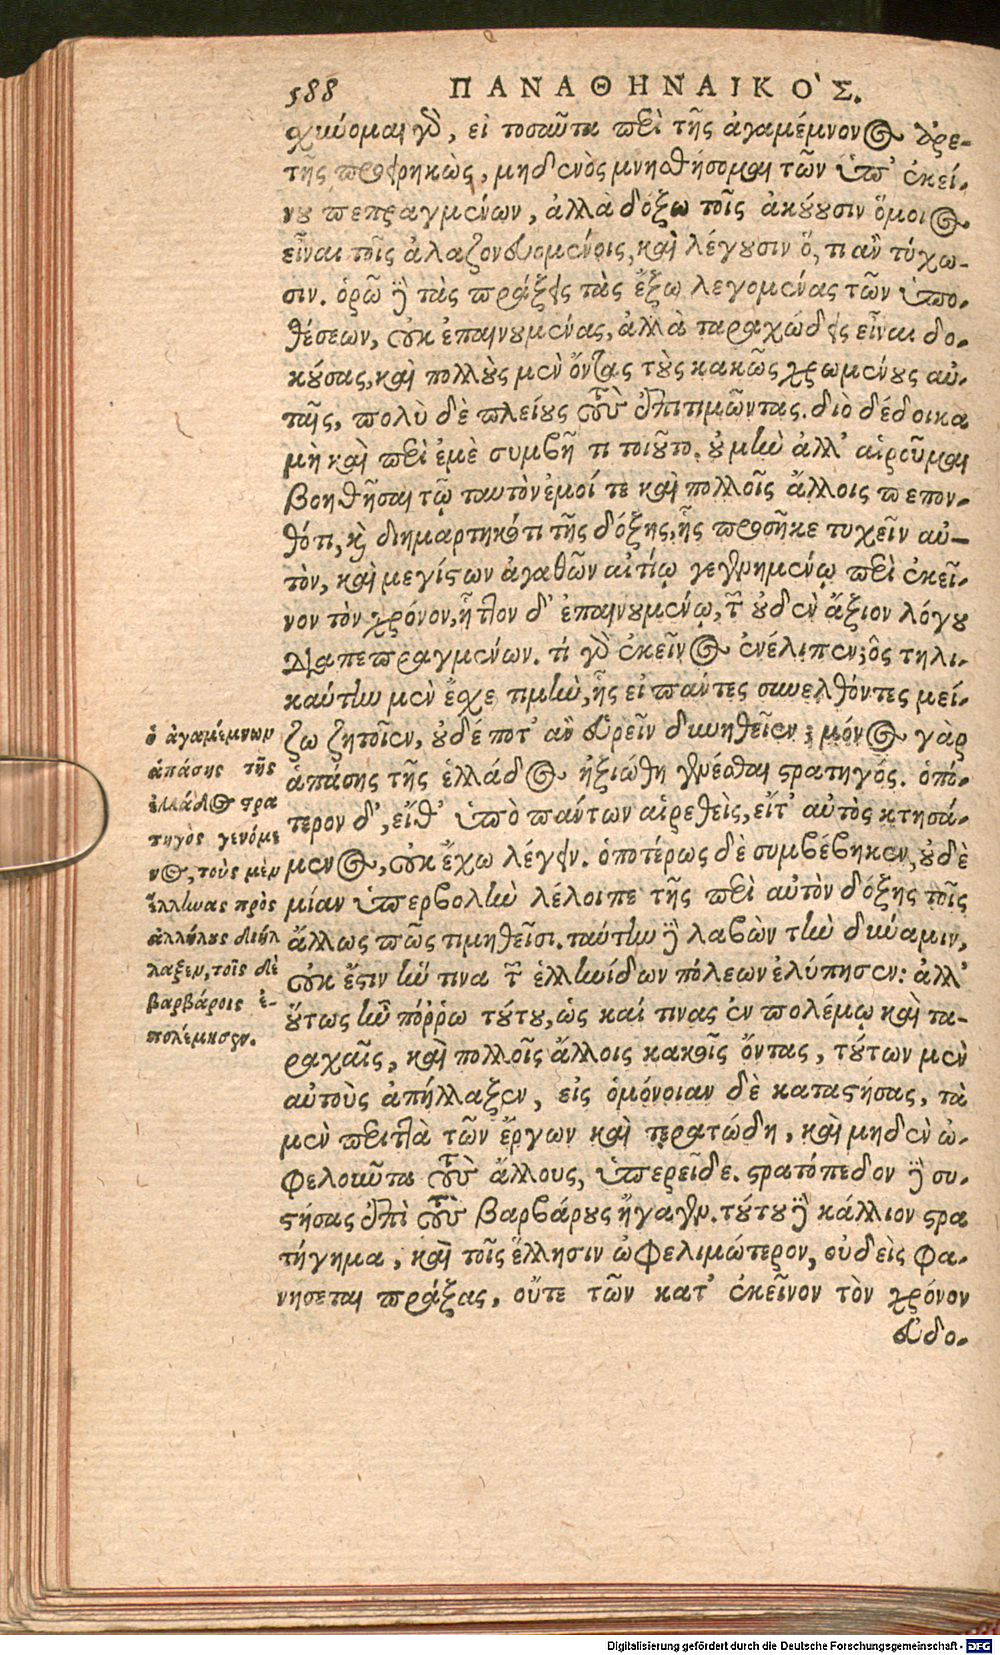 588 ΠΑΝΑΘΗΝΑΙΚΟ'Σ.
χυύομαι γδ, εἰ τοσαῦτα περὶ τῆς ἀγαμέμνονος ἀρε-
τῆς προειρηκὼς, μηδενὸς μνησθήσομαι τῶν ὑπ' ἐκεί-
νου πεπραγμένων, ἀλλὰ δόξω τοῖς ἀκούουσιν ὅμοιος
εἶναι τοῖς ἀλαζονευομένοις, καὶ λέγουσιν ὅ, τι ἂν τύχω-
σιν. ὁρῶ δὲ τὰς πράξεις τὰς ἔξω λεγομένας τῶν ὑπο-
θέσεων, οὐκ ἐπαινουμένας, ἀλλὰ ταραχώδεις εἶναι δο-
κούσας, καὶ πολλοὺς μὲν ὄντας τοὺς κακῶς χρωμένους αὐ-
ταῖς, πολὺ δὲ πλείους τοὺς ἐπιτιμῶντας. διὸ δέδοικα
μὴ καὶ περὶ ἐμὲ συμβῇ τι τοιοῦτο. οὐ μὴν ἀλλ' αἱροῦμαι
βοηθῆσαι τῷ ταυτὸν ἐμοί τε καὶ πολλοῖς ἄλλοις πεπον-
θότι, καὶ διημαρτηκότι τῆς δόξης, ἧς προσῆκε τυχεῖν αὐ-
τὸν, καὶ μεγίστων ἀγαθῶν αἰτίῳ γεγενημένῳ περὶ ἐκεῖ-
νον τὸν χρόνον, ἧττον δ' ἐπαινουμένῳ, τῶν οὐδὲν ἄξιον λόγου
διαπεπραγμένων. τί γδ ἐκεῖνος ἐνέλιπεν; ὃς τηλι-
καύτην μὲν ἔσχε τιμὴν, ἧς εἰ πάντες συνελθόντες μεί-
ζω ζητοῖεν, οὐδέ ποτ' ἂν εὑρεῖν δυνηθεῖεν; μόνος γὰρ
ἁπάσης τῆς ἑλλάδος ἠξιώθη γενέσθαι στρατηγός. ὁπό-
τερον δ', εἴθ' ὑπὸ πάντων αἱρεθεὶς, εἴτ' αὐτὸς κτησά-
μενος, οὐκ ἔχω λέγειν. ὁποτέρως δὲ συμβέβηκεν, οὐδε
μίαν ὑπερβολὴν λέλοιπε τῆς περὶ αὐτὸν δόξης τοῖς
ἄλλως πῶς τιμηθεῖσι. ταύτην δὲ λαβὼν τὴν δύναμιν,
οὐκ ἔστιν ἥν τινα τῶν ἑλληνίδων πόλεων ἐλύπησεν: ἀλλ'
οὕτως ἦν πόῤῥω τούτου, ὡς καί τινας ἐν πολέμῳ καὶ τα-
ραχαῖς, καὶ πολλοῖς ἄλλοις κακοῖς ὄντας, τούτων μὲν
αὐτοὺς ἀπήλλαξεν, εἰς ὁμόνοιαν δὲ καταστήσας, τὰ
μὲν περιττὰ τῶν ἔργων καὶ τερατώδη, καὶ μηδὲν ὠ-
φελοῦντα τοὺς ἄλλους, ὑπερεῖδε. στρατόπεδον δὲ συ-
στήσας ἐπὶ τοὺς βαρβάρους ἤγαγεν. τούτου δὲ κάλλιον στρα
τήγημα, καὶ τοῖς ἕλλησιν ὠφελιμώτερον, οὐδεὶς φα-
νήσεται πράξας, οὔτε τῶν κατ' ἐκεῖνον τὸν χρόνον
εὐδο-
ὁ ἀγαμέμνων
ἁπάσης τῆς
ἑλλάδος στρα
τηγὸς γενόμε
νος, τοὺς μὲν
ἕλληνας πρὸς
ἀλλήλους διήλ
λαξεν, τοῖς δὲ
βαρβάροις ἐ-
πολέμησεν.
Digitalisierung gefördert durch die Deutsche Forschungsgemeinschaft - DFG